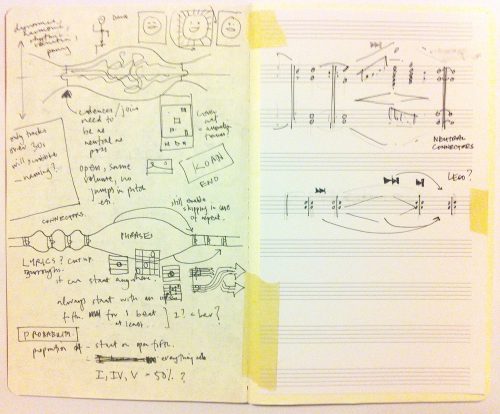 dynamics,
harmonic,
rhythmic
variation,
pacing
DANCE
cadences/join
need to
be as
neutral as
poss
open, same
volume, no
jumps in pitch
etc.
only tracks
over 30s
will
naming?
KOAN
END
still enable
skipping in case
of repeat.
CONNECTORS
PHRASE
LYRICS? cut up.
Burroughs.
it can start anywhere.
always start with an open
fifth. for 1 beat
at least.
1? = bar?
PROBABILITY
proportion of - start on open fifth.
everything
I, IV, V = 50% ?
NEUTRAL
CONNECTORS
LEGO?